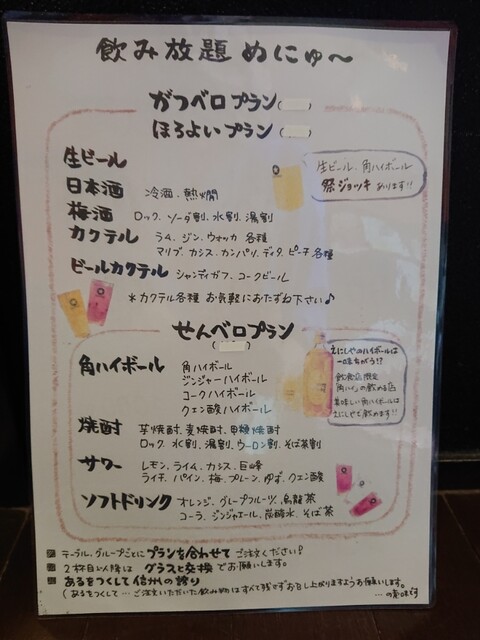 飲み放題 めにゅ〜
がつベロプラン
ほろよいプラン
生ビール
生ビール、角ハイボール
祭ジョッキ あります!!
日本酒 冷酒、熱燗
梅酒 ロック、ソーダ割、水割、湯割
カクテル ラム、ジン、ウォッカ 各種
マリブ、カシス、カンパリ、ディタ、ピーチ 各種
ビールカクテル シャンディガフ、コークビール
*カクテル各種 お気軽におたずね下さい♪
せんベロプラン
角ハイボール 角ハイボール
ジンジャーハイボール
コークハイボール
クエン酸ハイボール
えにしやのハイボールは
一味ちがう!?
飲食店限定
角ハイ の飲める店
美味しい角ハイボールは
えにしやで飲めます!!
焼酎 芋焼酎、麦焼酎、甲類焼酎
ロック、水割、湯割、ウーロン割、そば茶割
サワー レモン、ライム、カシス、巨峰
ライチ、パイン、梅、プレーン、ゆず、クエン酸
ソフトドリンク オレンジ、グレープフルーツ、烏龍茶
コーラ、ジンジャエール、炭酸水、そば茶
テーブル、グループごとにプランを合わせて ご注文ください!
2杯目以降は グラスと交換 でお願いします。
あるをつくして信州の誇り
(あるをつくして…ご注文いただいた飲み物はすべて残さずお召し上がりますようお願いします。
…の意味です